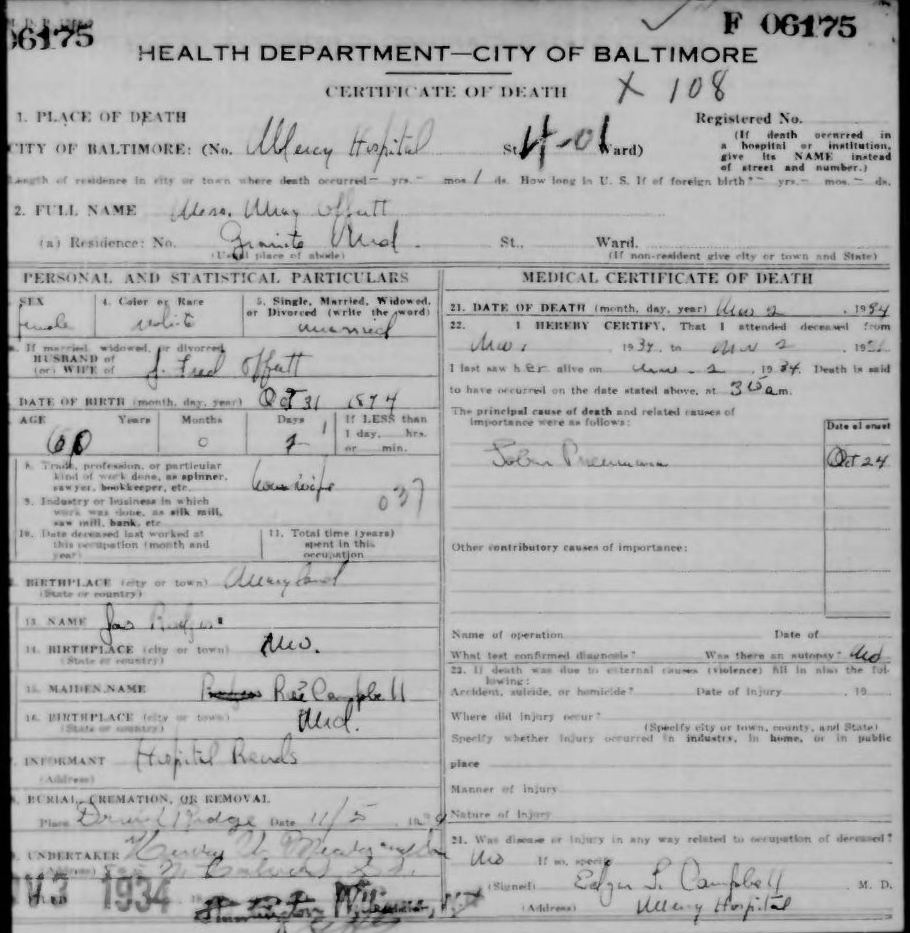 06175
F 06175
HEALTH DEPARTMENT—CITY OF BALTIMORE
CERTIFICATE OF DEATH X 108
1. PLACE OF DEATH
Registered No.
CITY OF BALTIMORE: (No. Mercy Hospital St. 4-01 Ward)
(If death occurred in a hospital or institution, give its NAME instead of street and number.)
Length of residence in city or town where death occurred— yrs.— mos. 1 ds. How long in U. S. If of foreign birth?— yrs.— mos.— ds.
2. FULL NAME Mrs. May Offutt
(a) Residence: No. Granite Md. St., Ward.
(Usual place of abode) (If non-resident give city or town and State)
PERSONAL AND STATISTICAL PARTICULARS
SEX female
4. Color or Race white
5. Single, Married, Widowed, or Divorced (write the word) married
If married, widowed, or divorced
HUSBAND of
(or) WIFE of J. Fred Offutt
DATE OF BIRTH (month, day, year) Oct 31 1874
AGE Years Months Days If LESS than
1 day, hrs.
or min.
60 0 2
8. Trade, profession, or particular
kind of work done, as spinner,
sawyer, bookkeeper, etc. housewife
037
9. Industry or business in which
work was done, as silk mill,
saw mill, bank, etc
10. Date deceased last worked at
this occupation (month and
year)
11. Total time (years)
spent in this
occupation
BIRTHPLACE (city or town) Maryland
(State or country)
13. NAME Jas
14. BIRTHPLACE (city or town)
(State or country)
15. MAIDEN NAME Campbell
16. BIRTHPLACE (city or town) Md.
(State or country)
INFORMANT Hospital Records
(Address)
BURIAL, CREMATION, OR REMOVAL
Place Druid Ridge Date 11/5
UNDERTAKER
(Address)
3 1934
MEDICAL CERTIFICATE OF DEATH
21. DATE OF DEATH (month, day, year) Nov 2, 1934
22. I HEREBY CERTIFY, That I attended deceased from
Nov 1, 1934, to Nov 2
I last saw her alive on Nov. 2, 1934. Death is said
to have occurred on the date stated above, at a m.
The principal cause of death and related causes of
importance were as follows:
Date of onset
Lobar Pneumonia Oct 24
Other contributory causes of importance:
Name of operation Date of
What test confirmed diagnosis? Was there an autopsy?
23. If death was due to external causes (violence) fill in also the fol-
lowing:
Accident, suicide, or homicide? Date of injury , 19
Where did injury occur?
(Specify city or town, county, and State)
Specify whether injury occurred in industry, in home, or in public
place
Manner of injury
Nature of injury
24. Was disease or injury in any way related to occupation of deceased?
No If so, specify
(Signed) Edgar L. Campbell M. D.
(Address) Mercy Hospital